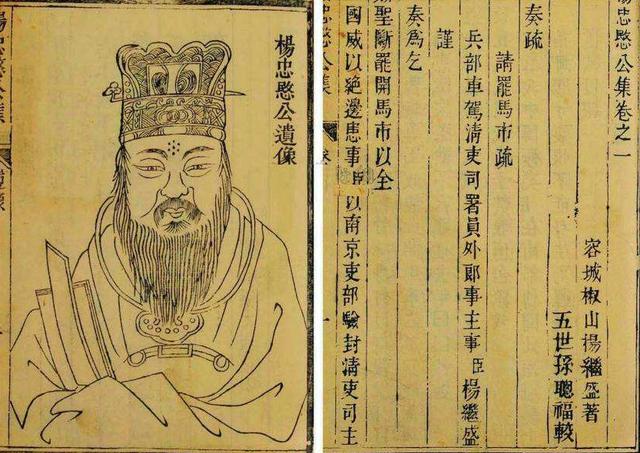 楊忠愍公遺像
楊忠愍公集
楊忠愍公集卷之一
容城椒山楊繼盛著
五世孫聰福較
奏疏
請罷馬市疏
兵部車駕清吏司署員外郎事主事臣楊繼盛
謹
奏爲乞
聖斷罷開馬市以全
國威以絕邊患事臣以南京吏部驗封清吏司主